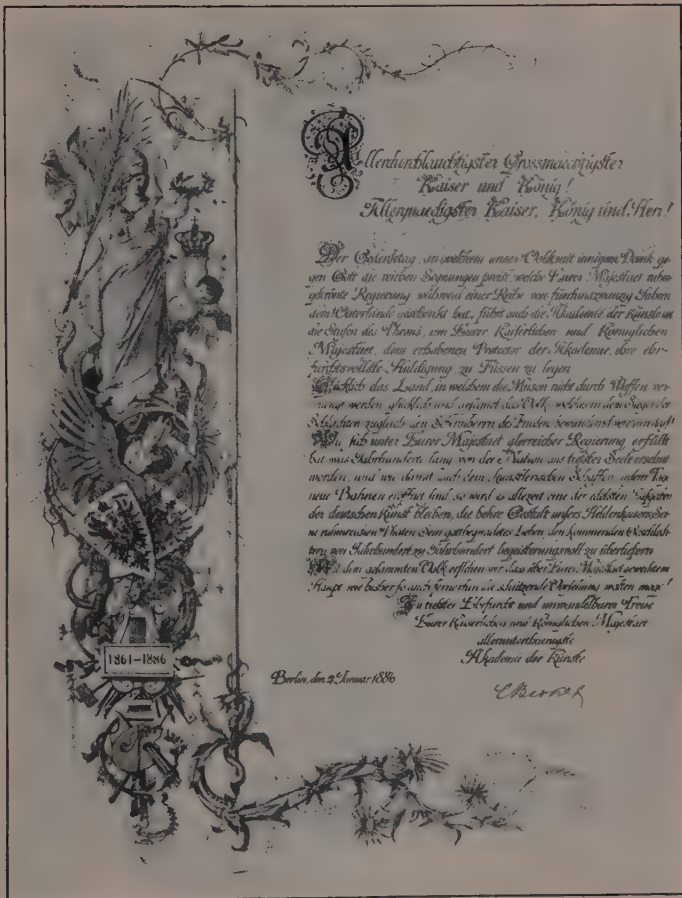 Allerdurchlauchtigster Grossmaechtigster
Kaiser und König!
Allergnaedigster Kaiser, König und Herr!
Der Gedenktag, an welchem unser Volk mit innigem Dank ge-
gen Gott die reichen Segnungen preist, welche Eurer Majestaet ruhm-
gekrönte Regierung während einer Reihe von fünfundzwanzig Jahren
dem Vaterlande geschenkt hat, führt auch die Akademie der Künste an
die Stufen des Throns, um Eurer Kaiserlichen und Koeniglichen
Majestaet, dem erhabenen Protector der Akademie, ihre ehr-
furchtsvollste Huldigung zu Füssen zu legen
Glücklich das Land, in welchem die Musen nicht durch Waffen ver-
werden, glücklich und das Volk, welches in dem Sieger der
Schlachten zugleich den Schirmherrn des Friedens
sich unter Eurer Majestaet glorreicher Regierung erfüllt
hat was Jahrhunderte lang von der Nation aus tiefster Seele ersehnt
worden, und wie damit auch dem künstlerischen Schaffen unserer Tage
neue Bahnen eröffnet sind so wird es allezeit eine der edelsten Aufgaben
der deutschen Kunst bleiben, die hehre Gestalt unsers Heldenkaisers, Sei-
ne ruhmreichen Thaten Sein gottbegnadetes Leben, den kommenden Geschlech-
tern von Jahrhundert zu Jahrhundert begeisterungsvoll zu überliefern
Mit dem gesammten Volk erflehen wir dass über Eurer Majestaet geweihtem
Haupt wie bisher so auch fernerhin die schützende Vorsehung walten moge!
In tiefster Ehrfurcht und unwandelbarer Treue
Eurer Kaiserlichen und Königlichen Majestaet
allerunterthaenigste
Akademie der Künste
1861-1886
Berlin, den 2 Januar 1886